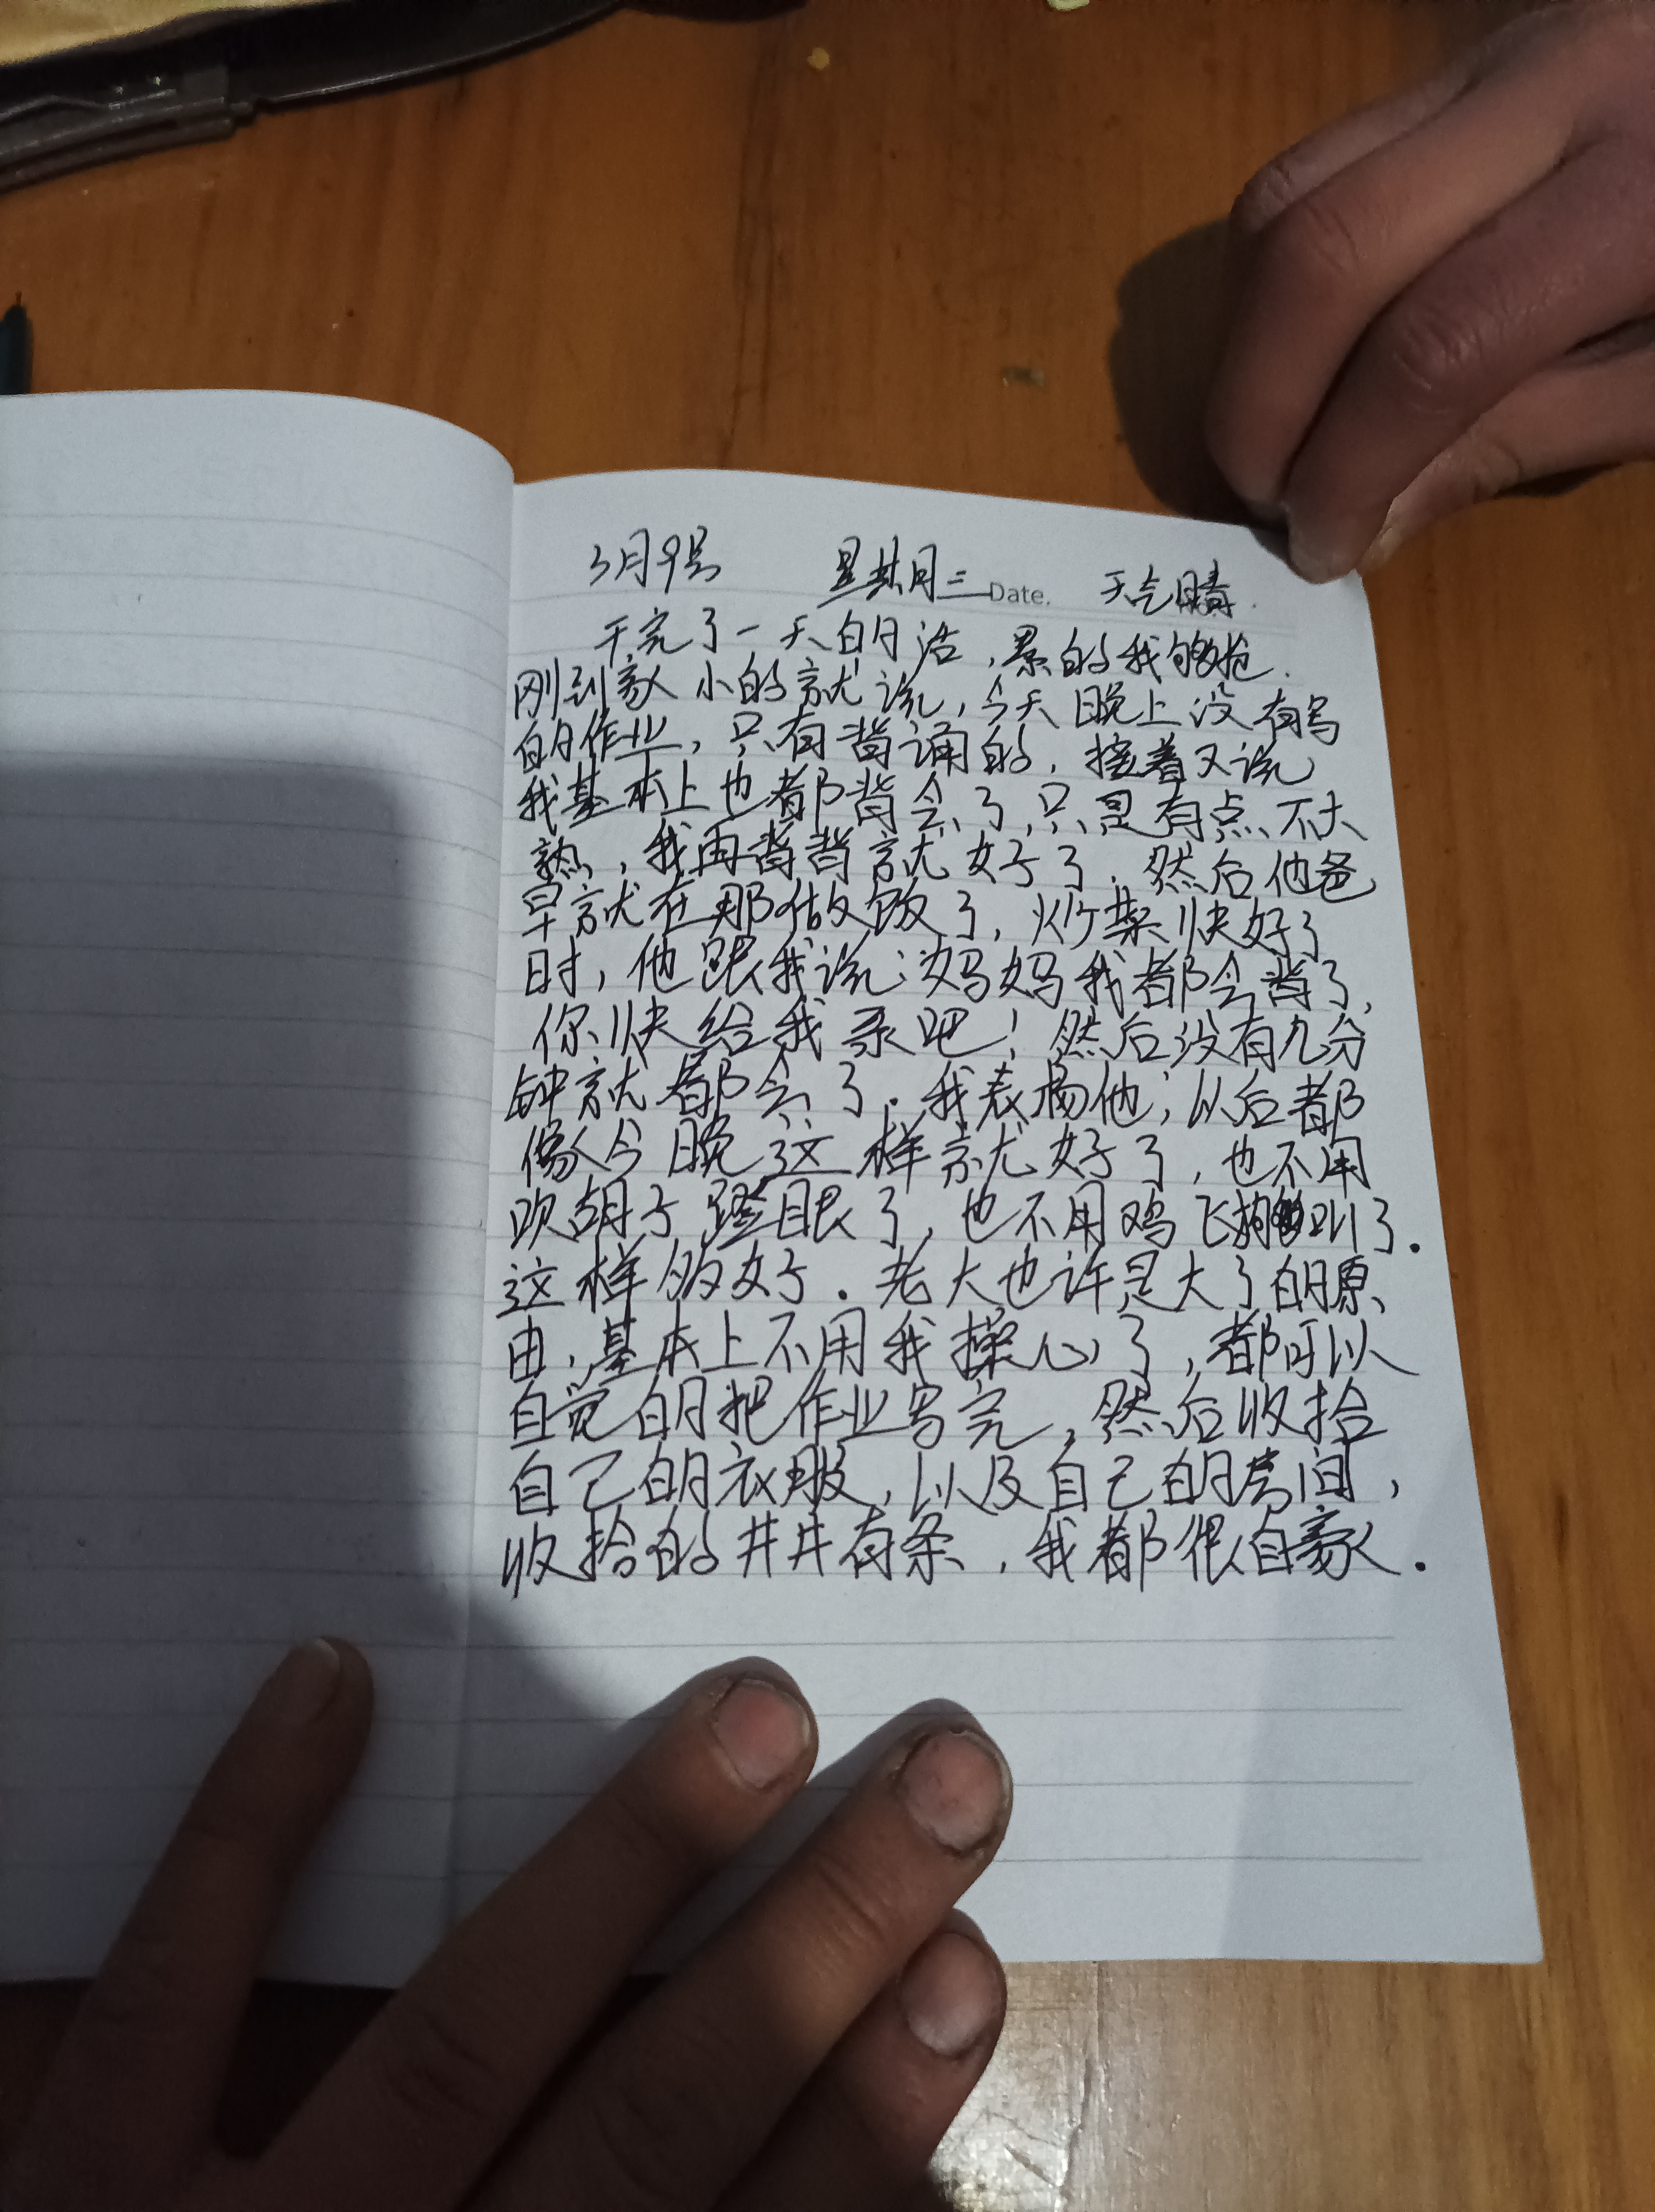 3月9号 星期三 Date. 天气晴
干完了一天的活，累的我够抢.
刚到家小的就说，今天晚上没有写
的作业，只有背诵的，接着又说
我基本上也都背会了，只是有点不大
熟，我再背背就好了．然后他爸
早就在那做饭了，炒菜快好了
时，他跟我说：妈妈我都会背了，
你快给我录吧！然后没有几分
钟就都会了．我表扬他；以后都
像今晚这样就好了，也不用
吹胡子瞪眼了，也不用鸡飞狗叫了．
这样多好．老大也许是大了的原
由，基本上不用我操心了，都可以
自觉的把作业写完，然后收拾
自己的衣服，以及自己的房间，
收拾的井井有条，我都很自豪．